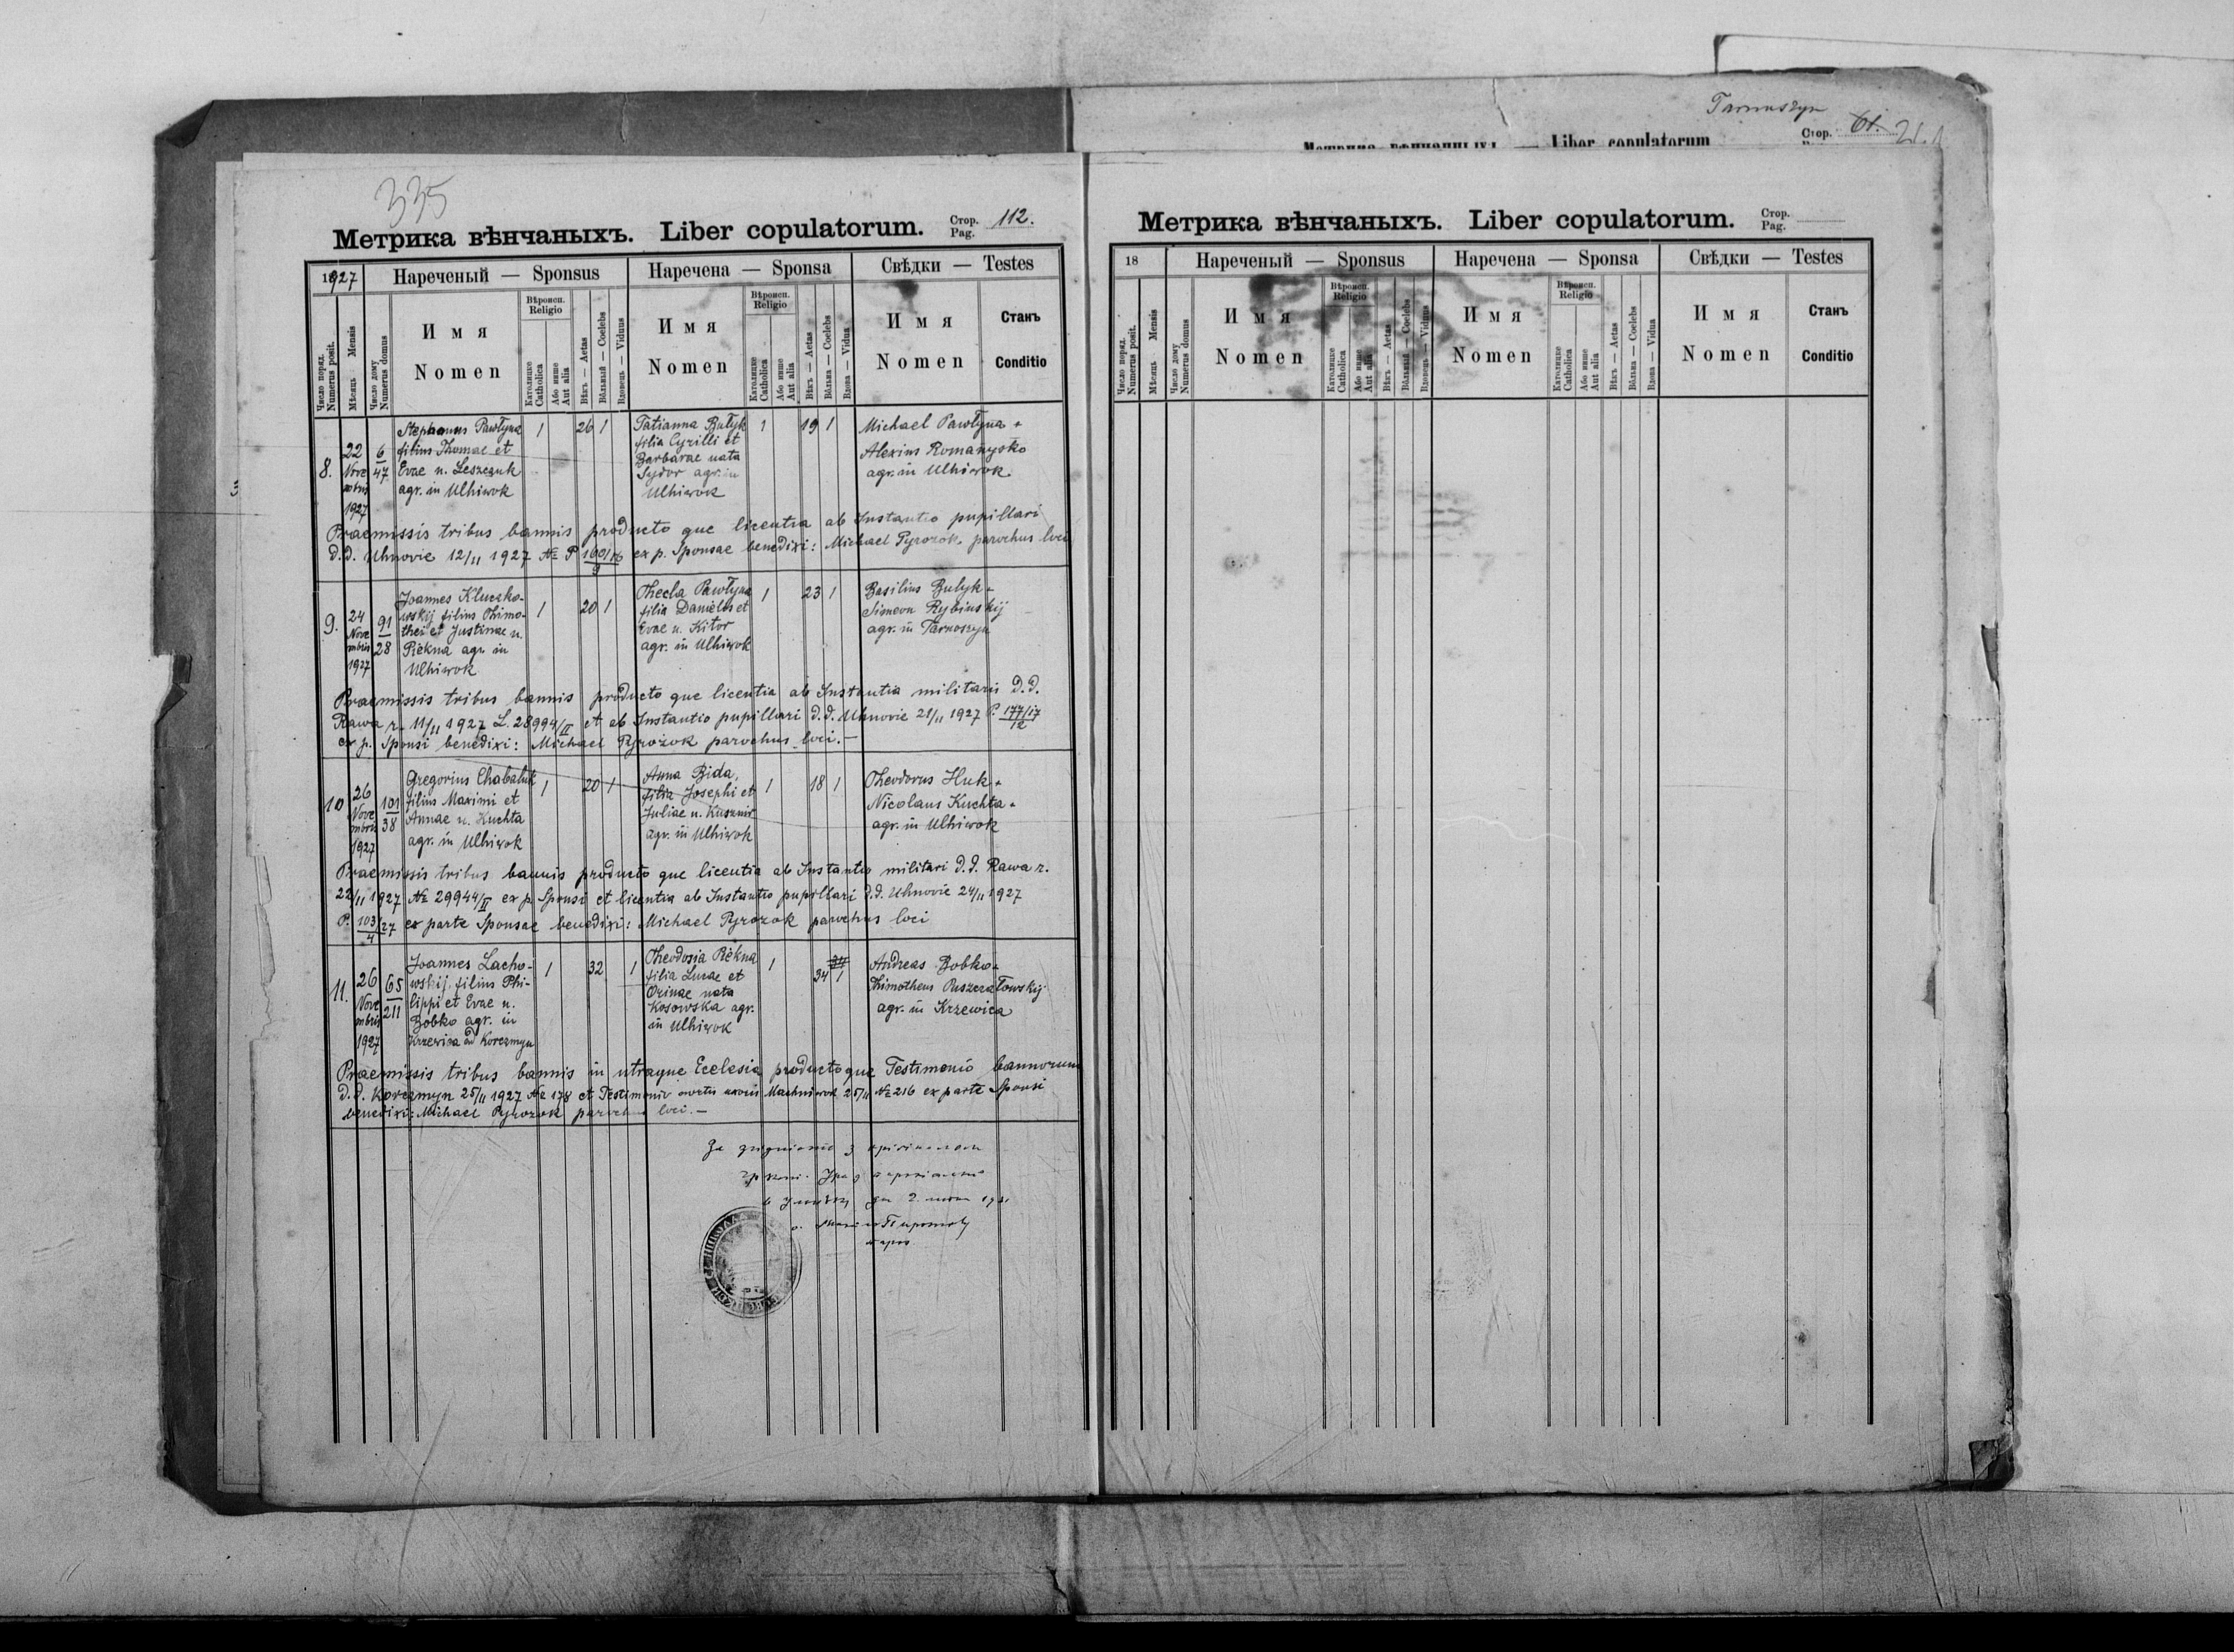 Tarnoszyn
Стор. 61. 21.
Метрика вѣнчанныхъ — Liber copulatorum
335
Метрика вѣнчаныхъ. Liber copulatorum. Стор. Pag. 112.
1927 Нареченый — Sponsus Наречена — Sponsa Свѣдки — Testes
Число поряд. Numerus posit.
Мѣсяць Mensis
Число дому Numerus domus
Имя Nomen
Вѣроисп. Religio
Католицке Catholica
Або инше Aut alia
Вѣкъ — Aetas
Вôльный — Coelebs
Вдовець — Viduus
Имя Nomen
Вѣроисп. Religio
Католицке Catholica
Або инше Aut alia
Вѣкъ — Aetas
Вôльна — Coelebs
Вдова — Vidua
Имя Nomen
Станъ Conditio
8. 22 Novembris 1927 6/47
Stephanus Pawłyna
filius Thomae et
Evae n. Leszczuk
agr. in Ulhiwok
1 26 1
Tatianna Bułyk
filia Cyrilli et
Barbarae nata
Sydor agr. in
Ulhiwok
1 19 1
Michael Pawłyna +
Alexius Romanysko
agr. in Ulhiwok.
Praemissis tribus bannis producto que licentia ab Instantio pupillari
d.d. Uhnovie 12/11 1927 № P 160/16/9 ex p. Sponsae benedixi: Michael Pyrozok parochus loci
9. 24 Novembris 1927 91/28
Joannes Kluczko-
wskij filius Thimo-
thei et Justinae n.
Piekna agr. in
Ulhiwok
1 20 1
Thecla Pawłyna
filia Danielis et
Evae n. Kitor
agr. in Ulhiwok
1 23 1
Basilius Bułyk +
Simeon Rybinskij
agr. in Tarnoszyn
Praemissis tribus bannis producto que licentia ab Instantia militaris d.d.
Rawa r. 11/11 1927 L. 28994/II et ab Instantio pupillari d.d. Uhnovie 21/11 1927 P. 177/17/12
ex p. Sponsi benedixi: Michael Pyrozok parochus loci.—
10 26 Novembris 1927 101/38
Gregorius Chabaluk
filius Maximi et
Annae n. Kuchta
agr. in Ulhiwok
1 20 1
Anna Bida,
filia Josephi et
Juliae n. Kusznir
agr. in Ulhiwok
1 18 1
Theodorus Huk +
Nicolaus Kuchta +
agr. in Ulhiwok
Praemissis tribus bannis producto que licentia ab Instantio militari d.d. Rawa r.
22/11 1927 № 29944/II ex p. Sponsi et licentia ab Instantio pupillari d.d. Uhnovie 24/11 1927
P. 103/27/4 ex parte Sponsae benedixi: Michael Pyrozok parochus loci
11. 26 Novembris 1927 65/211
Joannes Lacho-
wskij filius Phi-
lippi et Evae n.
Bobko agr. in
Krzewica ad Korczmyn
1 32 1
Theodosia Piekna
filia Lucae et
Orinae nata
Kosowska agr.
in Ulhiwok
1 34 1
Andreas Bobko +
Thimotheus Puszczałowskij
agr. in Krzewica
Praemissis tribus bannis in utraque Ecclesia producto que Testimonio bannorum
d.d. Korczmyn 25/11 1927 № 178 et Testimonio mortis uxoris Machniwok 25/11 № 216 ex parte Sponsi
benedixi: Michael Pyrozok parochus loci.—
Метрика вѣнчаныхъ. Liber copulatorum. Стор. Pag.
18 Нареченый — Sponsus Наречена — Sponsa Свѣдки — Testes
Число поряд. Numerus posit.
Мѣсяць Mensis
Число дому Numerus domus
Имя Nomen
Вѣроисп. Religio
Католицке Catholica
Або инше Aut alia
Вѣкъ — Aetas
Вôльный — Coelebs
Вдовець — Viduus
Имя Nomen
Вѣроисп. Religio
Католицке Catholica
Або инше Aut alia
Вѣкъ — Aetas
Вôльна — Coelebs
Вдова — Vidua
Имя Nomen
Станъ Conditio